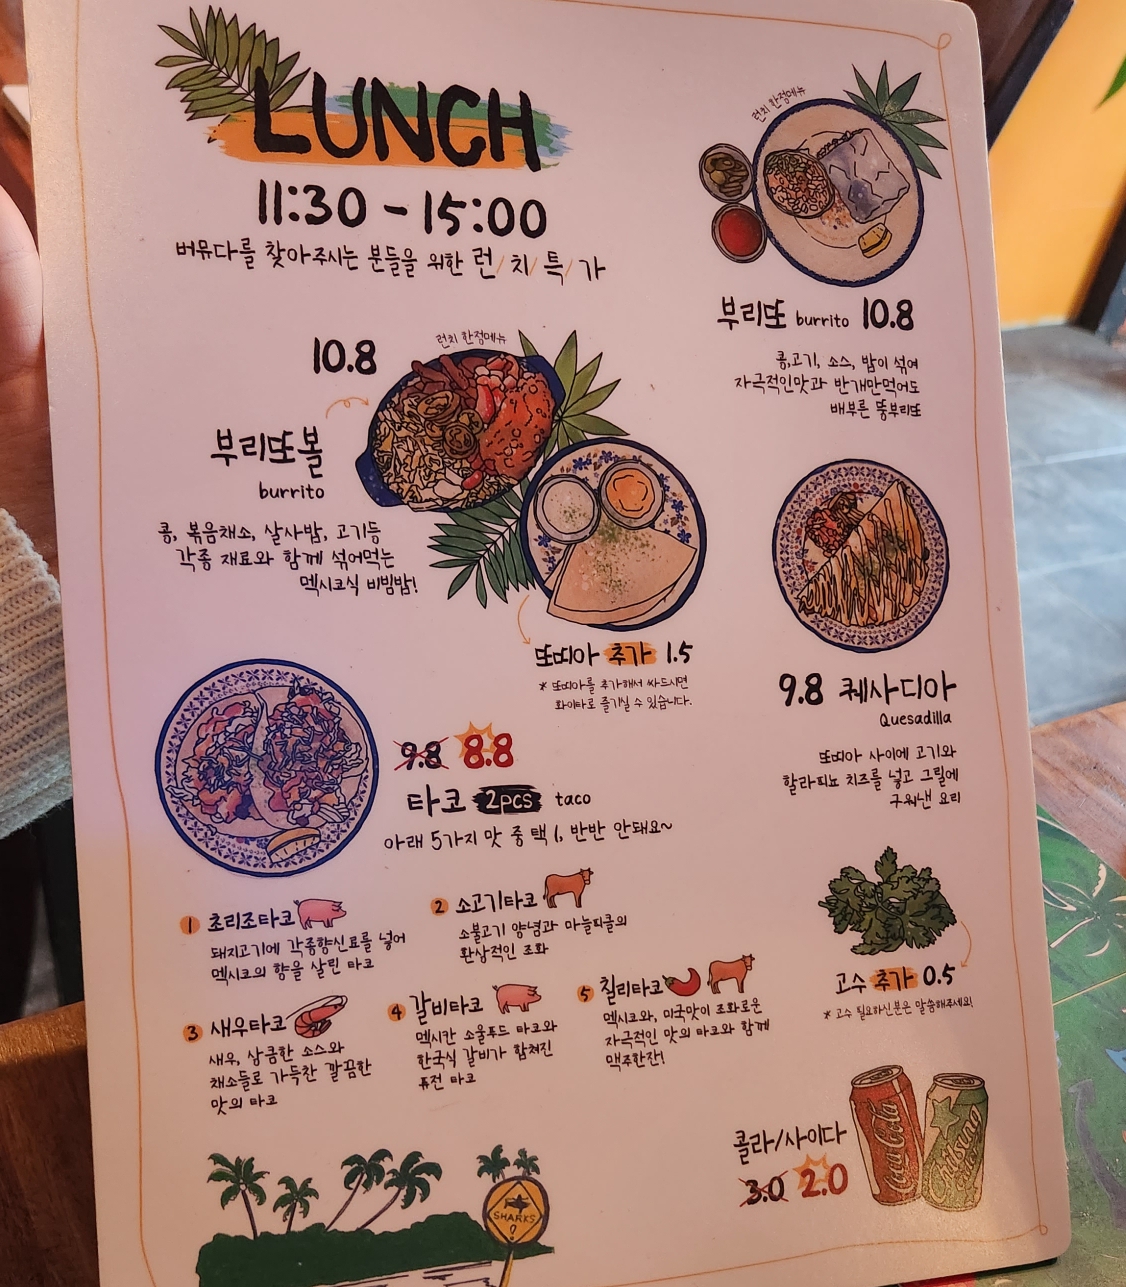 LUNCH
11:30 - 15:00
버뮤다를 찾아주시는 분들을 위한 런/치/특/가
런치 한정메뉴
부리또 burrito 10.8
콩,고기, 소스, 밥이 섞여
자극적인맛과 반개만먹어도
배부른 뚱부리또
런치 한정메뉴
10.8
부리또볼
burrito
콩, 볶음채소, 살사밥, 고기등
각종 재료와 함께 섞어먹는
멕시코식 비빔밥!
또띠아 추가 1.5
* 또띠아를 추가해서 싸드시면
화이타로 즐기실 수 있습니다.
9.8 퀘사디아
Quesadilla
또띠아 사이에 고기와
할라피뇨 치즈를 넣고 그릴에
구워낸 요리
9.8 8.8
타코 2pcs taco
아래 5가지 맛 중 택 1, 반반 안돼요~
1 초리조타코
돼지고기에 각종향신료를 넣어
멕시코의 향을 살린 타코
2 소고기타코
소불고기 양념과 마늘피클의
환상적인 조화
3 새우타코
새우, 상큼한 소스와
채소들로 가득찬 깔끔한
맛의 타코
4 갈비타코
멕시칸 소울푸드 타코와
한국식 갈비가 합쳐진
퓨전 타코
5 칠리타코
멕시코와, 미국맛이 조화로운
자극적인 맛의 타코와 함께
맥주한잔!
고수 추가 0.5
* 고수 필요하신분은 말씀해주세요!
콜라/사이다
3.0 2.0
Coca-Cola
Chilsung
SHARKS